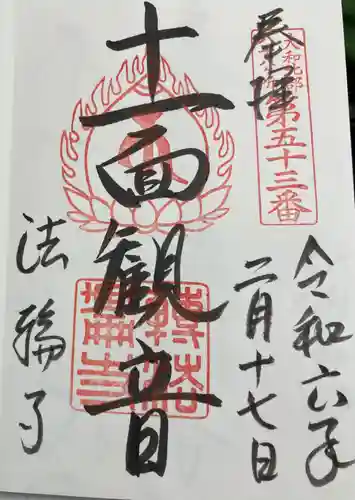 奉拝
大和北部
第五十三番
令和六年
二月十七日
十一面観音
法輪寺